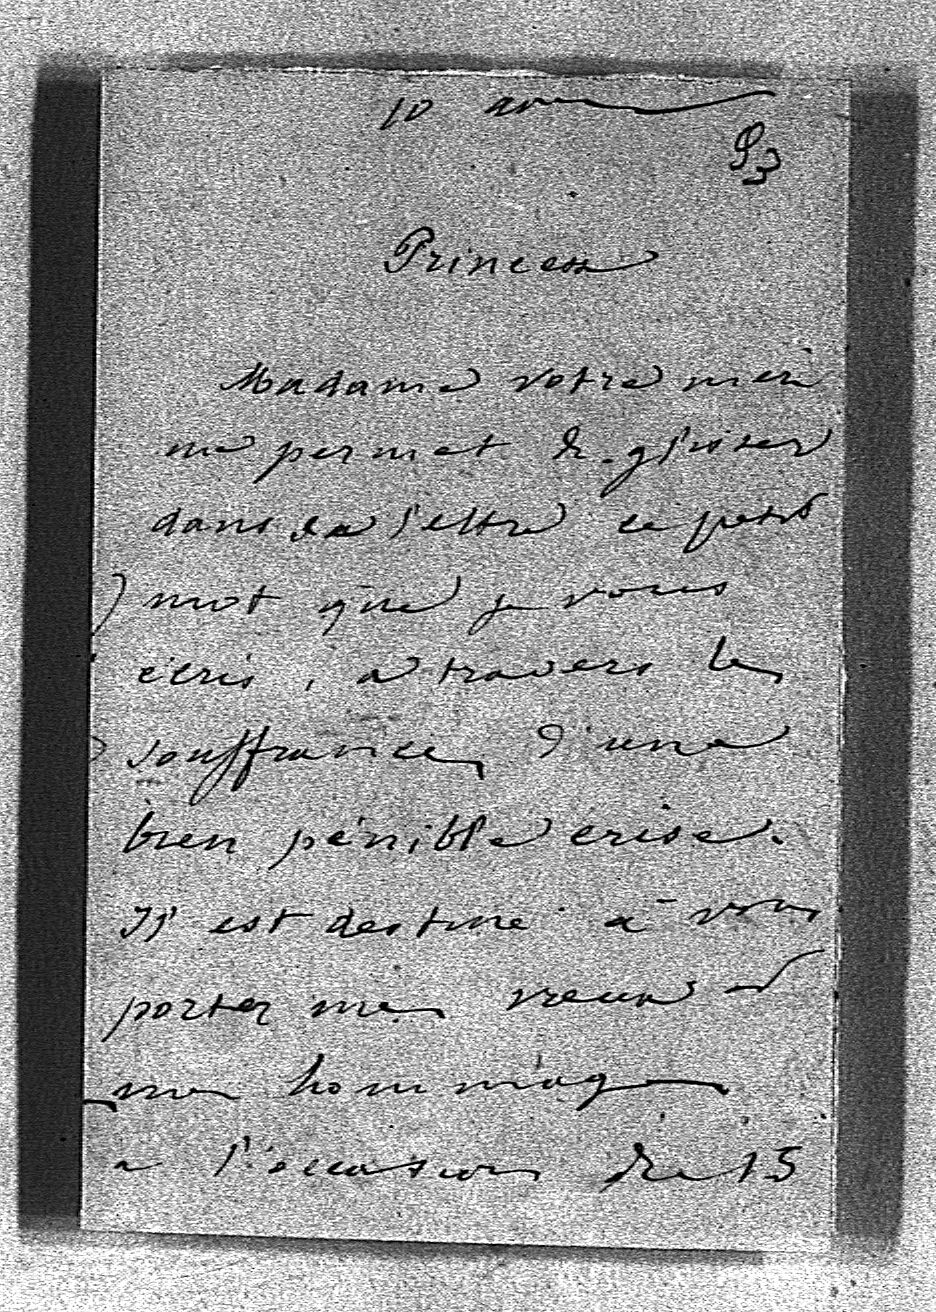 10
93
Princesse
Madame votre mère
me permet de glisser
dans sa lettre ce petit
mot que je vous
écris, à travers les
souffrances d'une
bien pénible crise.
Il est destiné à vous
porter mes vœux et
mes hommages
à l'occasion du 15